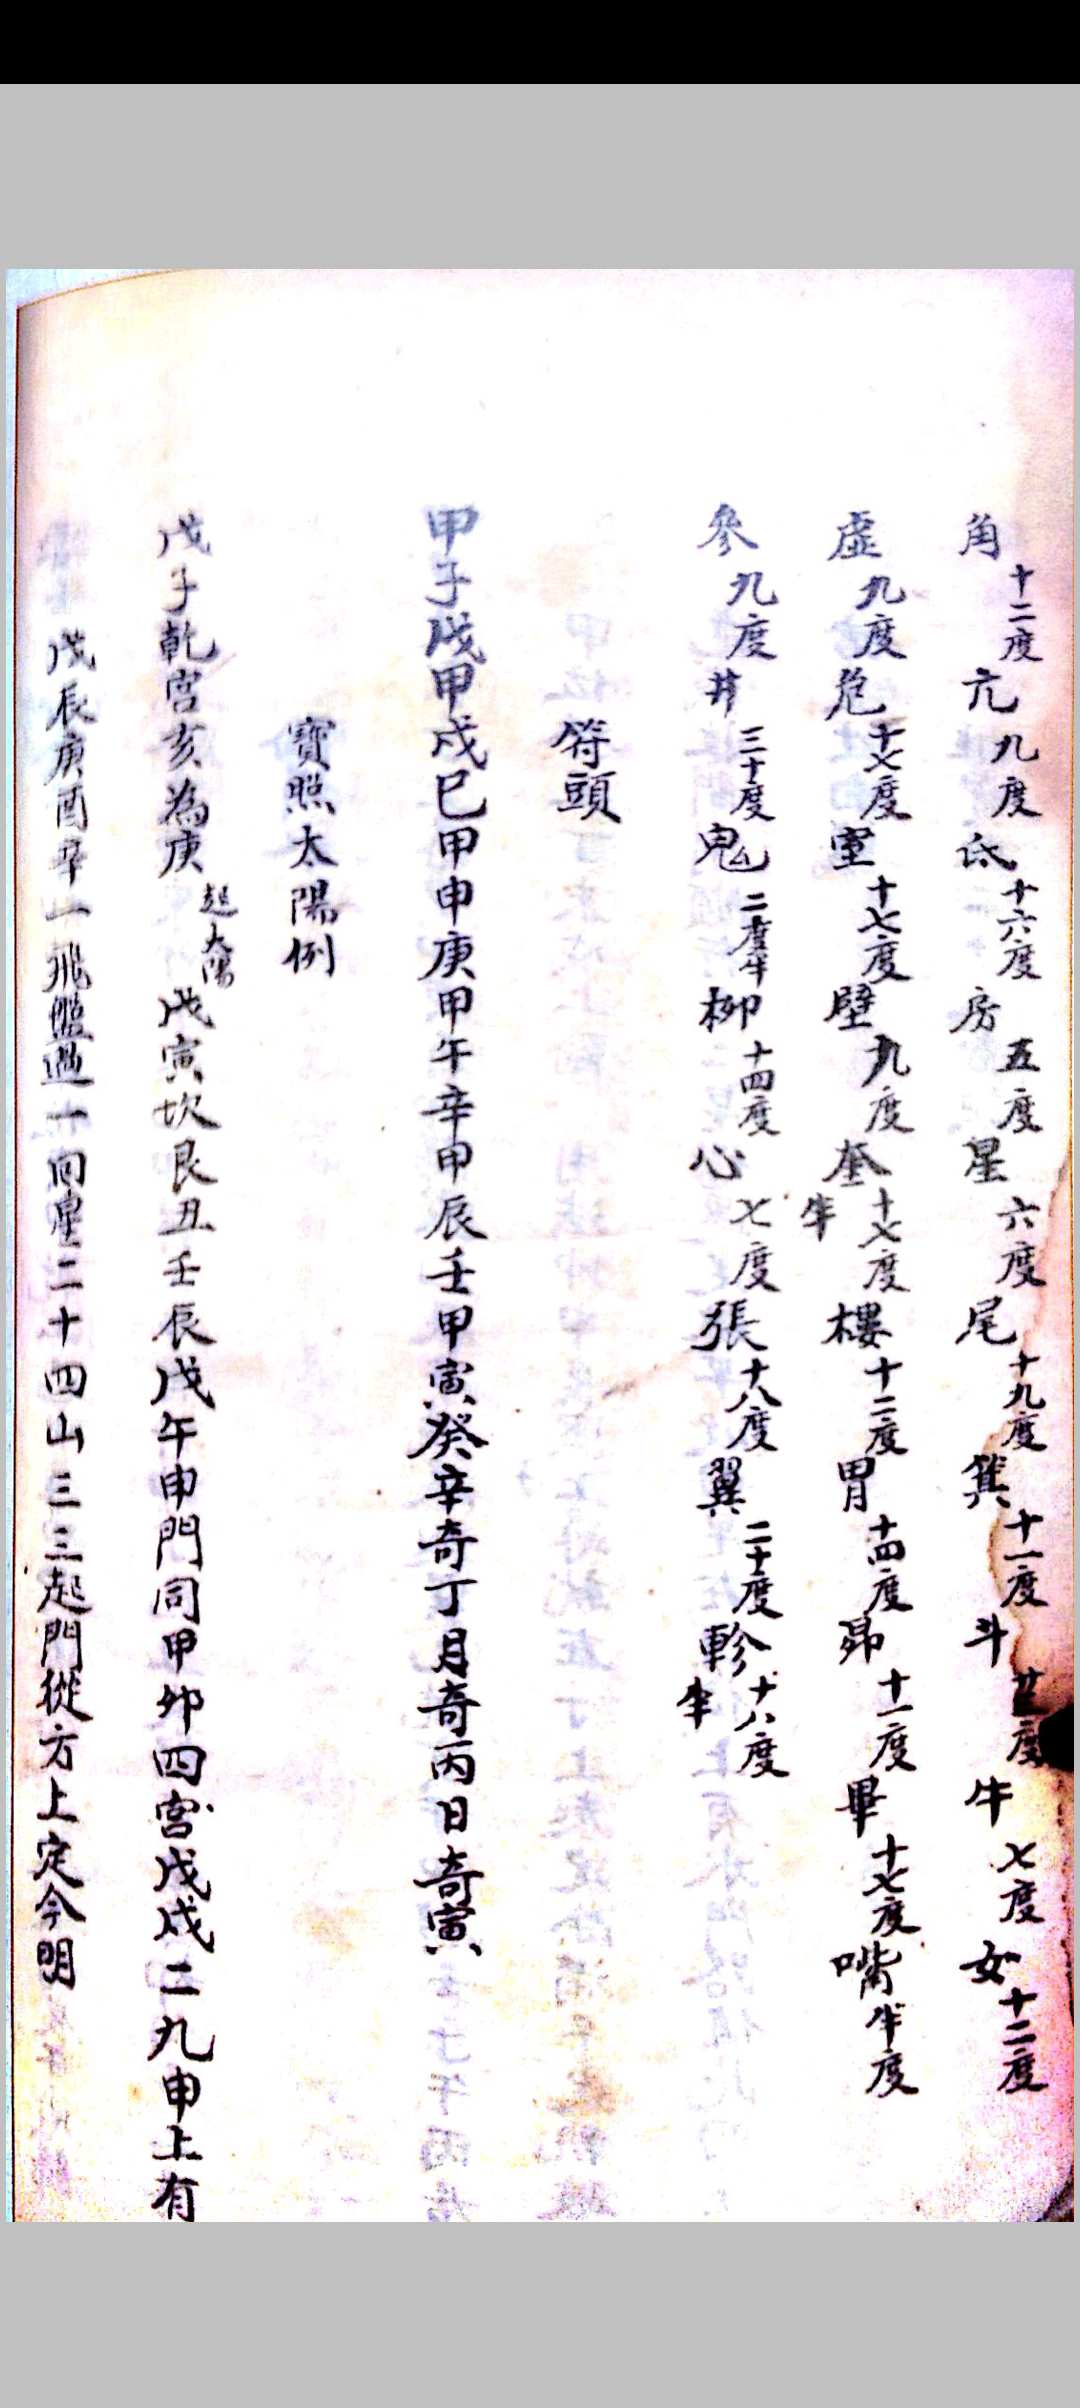 角十二度亢九度氐十六度房五度星六度尾十九度箕十一度斗廿三度牛七度女十二度
虚九度危十七度室十七度壁九度奎十七度半樓十二度胃十四度昴十一度畢十七度嘴半度
參九度井三十度鬼二度半柳十四度心七度張十八度翼二十度軫十八度半
符頭
甲子戊甲戌巳甲申庚甲午辛甲辰壬甲寅癸辛奇丁月奇丙日奇寅
寶照太陽例
戊子乾宫亥為庚起太陽戊寅坎艮丑壬辰戊午申門同甲卯四宮戊戌二九申上有
戊辰庚酉辛一飛盤過一回星二十四山三三起門從方上定今明